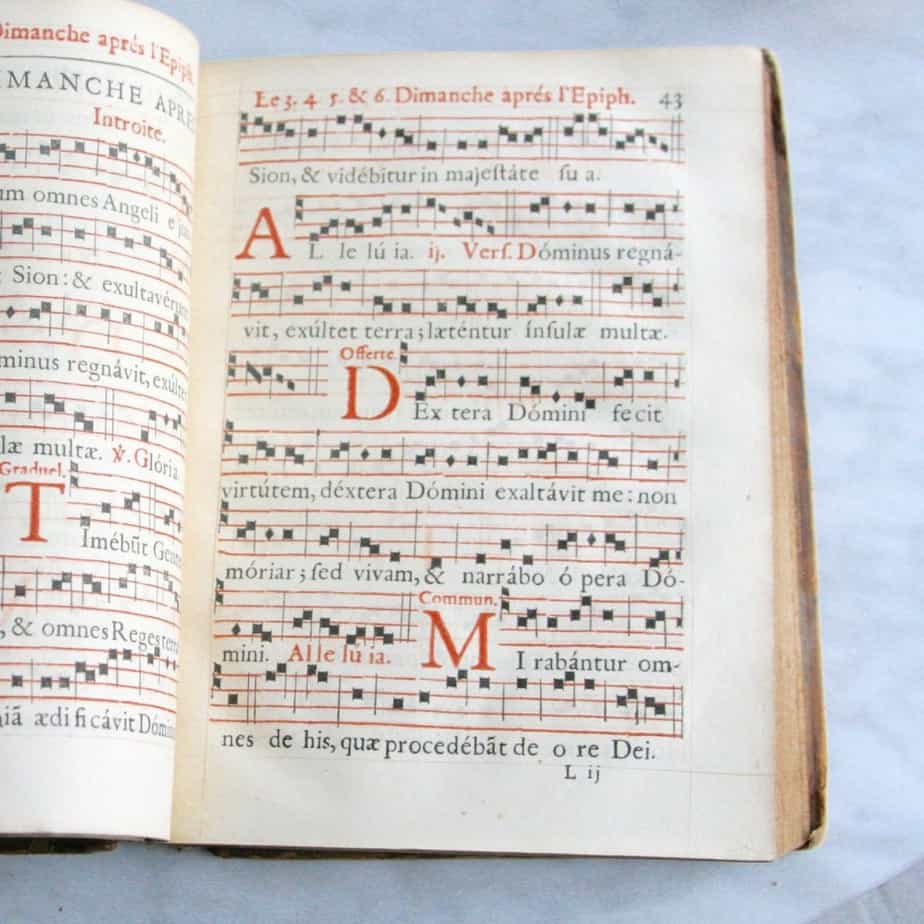 Dimanche aprés l'Epiph.
DIMANCHE APRE
Introite.
um omnes Angeli
Sion: & exultavé
minus regnávit, exúl
læ multæ. ℣. Glória.
Graduel.
TImébūt Gen
, & omnes Reges
ædificávit Dómi
Le 3. 4 5. & 6. Dimanche aprés l'Epiph. 43
Sion, & vidébitur in majeſtáte ſu a.
AL le lú ia. ij. Verſ. Dóminus regná-
vit, exúltet terra; læténtur ínſulæ multæ.
Offerte.
DEx tera Dómini fecit
virtútem, déxtera Dómini exaltávit me: non
móriar; ſed vivam, & narrábo ó pera Dó-
Commun.
mini. Al le lú ia. MI rabántur om-
nes de his, quæ procedébāt de o re Dei.
L ij